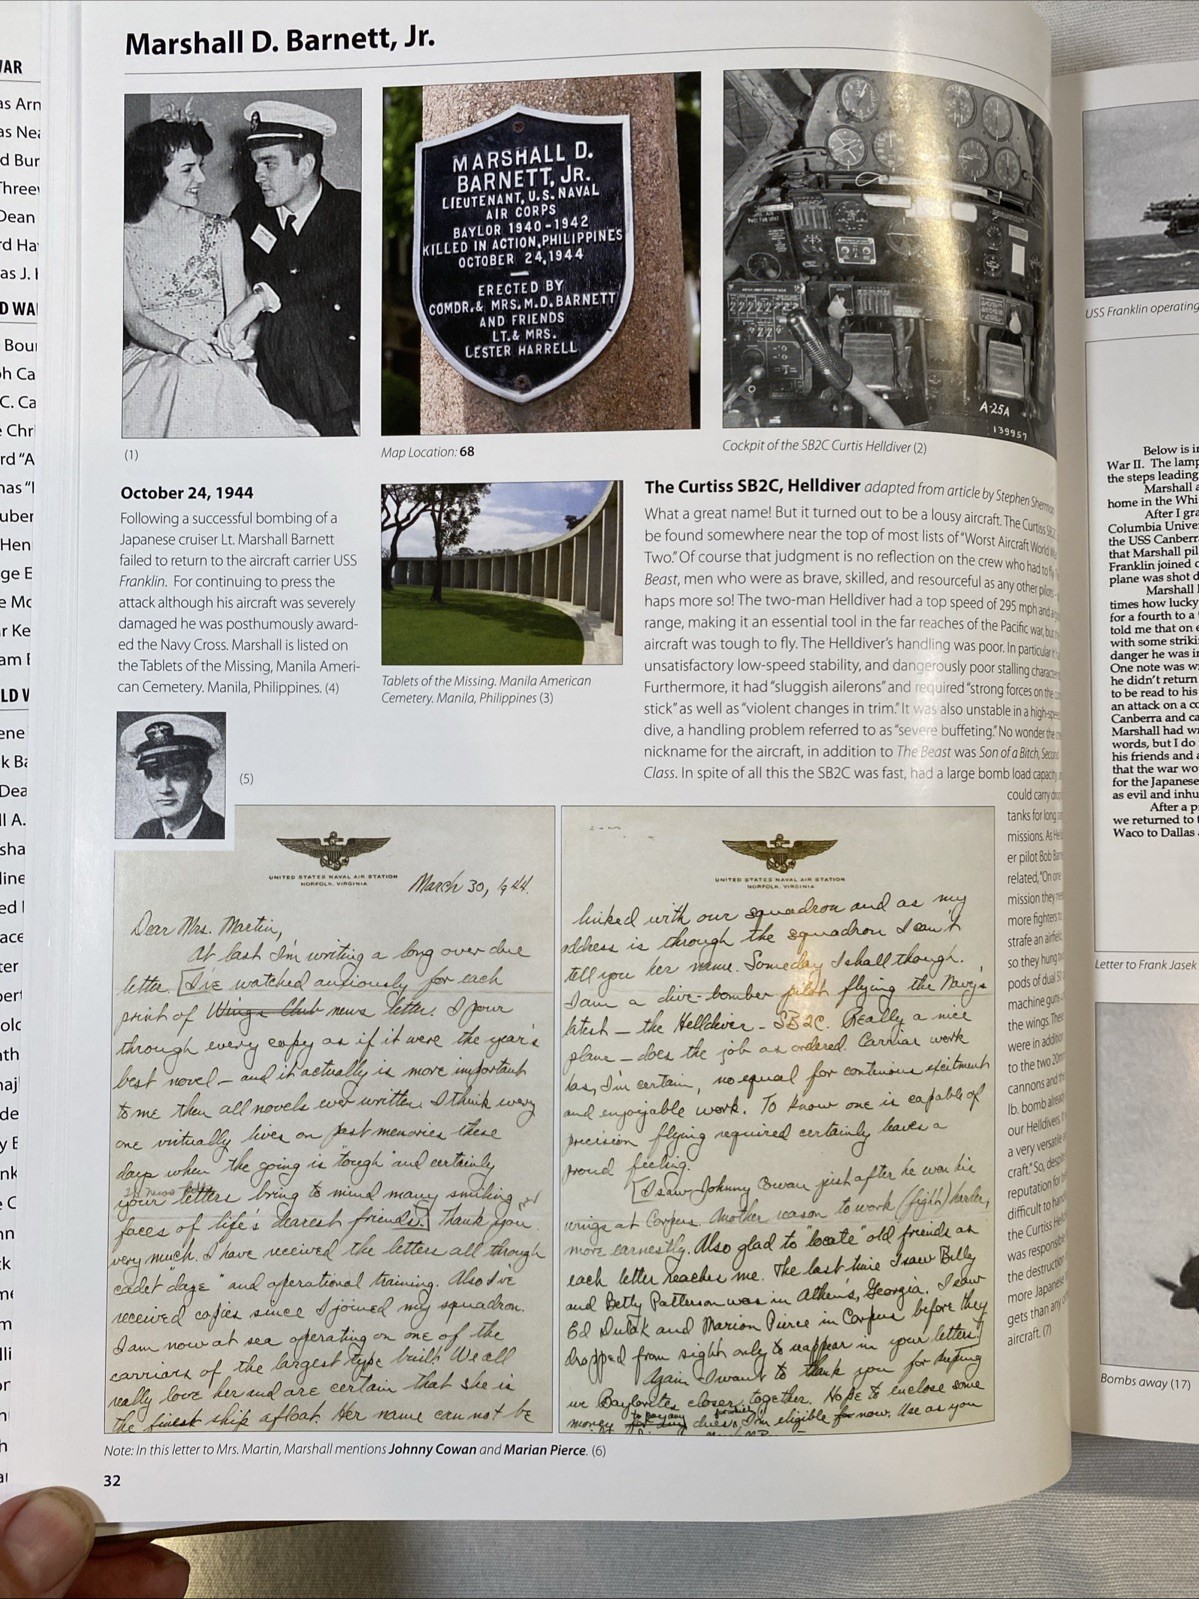 Marshall D. Barnett, Jr.
MARSHALL D.
BARNETT, JR.
LIEUTENANT, U.S. NAVAL
AIR CORPS
BAYLOR 1940-1942
KILLED IN ACTION, PHILIPPINES
OCTOBER 24, 1944
ERECTED BY
COMDR. & MRS. M.D. BARNETT
AND FRIENDS
LT. & MRS.
LESTER HARRELL
A-25A
139957
(1)
Map Location: 68
Cockpit of the SB2C Curtis Helldiver (2)
October 24, 1944
Following a successful bombing of a
Japanese cruiser Lt. Marshall Barnett
failed to return to the aircraft carrier USS
Franklin. For continuing to press the
attack although his aircraft was severely
damaged he was posthumously award-
ed the Navy Cross. Marshall is listed on
the Tablets of the Missing, Manila Ameri-
can Cemetery. Manila, Philippines. (4)
Tablets of the Missing. Manila American
Cemetery. Manila, Philippines (3)
(5)
The Curtiss SB2C, Helldiver adapted from article by Stephen Sherman
What a great name! But it turned out to be a lousy aircraft. The Curtiss SB2C
be found somewhere near the top of most lists of "Worst Aircraft World
Two." Of course that judgment is no reflection on the crew who had to fly
Beast, men who were as brave, skilled, and resourceful as any other pilots
haps more so! The two-man Helldiver had a top speed of 295 mph and
range, making it an essential tool in the far reaches of the Pacific war, but
aircraft was tough to fly. The Helldiver's handling was poor. In particular
unsatisfactory low-speed stability, and dangerously poor stalling
Furthermore, it had "sluggish ailerons" and required "strong forces on the
stick" as well as "violent changes in trim." It was also unstable in a high-speed
dive, a handling problem referred to as "severe buffeting." No wonder the
nickname for the aircraft, in addition to The Beast was Son of a Bitch, Second
Class. In spite of all this the SB2C was fast, had a large bomb load capacity
could carry drop
tanks for long
missions. As
er pilot Bob
related, "On one
mission they
more fighters to
strafe an airfield
so they hung
pods of dual
machine guns
the wings. These
were in addition
to the two 20mm
cannons and the
lb. bomb already
our Helldivers.
a very versatile
craft." So, despite
reputation for
difficult to handle
the Curtiss
was responsible
the destruction
more Japanese
gets than any
aircraft. (7)
UNITED STATES NAVAL AIR STATION
NORFOLK, VIRGINIA
March 30, 1944.
Dear Mrs. Martin,
At last I'm writing a long over due
letter. [I've watched anxiously for each
print of Wings Club news letter. I pour
through every copy as if it were the year's
best novel – and it actually is more important
to me then all novels ever written. I think every
one virtually lives on past memories these
days when "the going is tough" and certainly
your letters bring to mind many smiling
faces of life's dearest friends.] Thank you
very much. I have received the letters all through
cadet "daze" and operational training. Also I've
received copies since I joined my squadron.
I am now at sea operating on one of the
carriers of the largest type built. We all
really love her and are certain that she is
the finest ship afloat. Her name can not be
UNITED STATES NAVAL AIR STATION
NORFOLK, VIRGINIA
linked with our squadron and as my
address is through the squadron I can't
tell you her name. Someday I shall though.
I am a dive-bomber pilot flying the Navy's
latest – the Helldiver – SB2C. Really a nice
plane – does the job as ordered. Carrier work
has, I'm certain, no equal for continuous excitment
and enjoyable work. To know one is capable of
precision flying required certainly leaves a
proud feeling.
[I saw Johnny Cowan just after he won his
wings at Corpus. Another reason to work (fight) harder,
more earnestly. Also glad to "locate" old friends as
each letter reaches me. The last time I saw Billy
and Betty Patterson was in Athens, Georgia. I saw
Ed Dulak and Marion Pierce in Corpus before they
dropped from sight only to reappear in your letters]
Again I want to thank you for keeping
we Baylorites closer together. Hope to enclose some
money to pay any dues, I'm eligible for now. Use as you
Note: In this letter to Mrs. Martin, Marshall mentions Johnny Cowan and Marian Pierce. (6)
32
USS Franklin operating
Below is in
War II. The lamp
the steps leading
Marshall a
home in the Whi
After I gra
Columbia Univer
the USS Canberra
that Marshall pil
Franklin joined
plane was shot d
Marshall
times how lucky
for a fourth to a
told me that on e
with some striki
danger he was in
One note was w
he didn't return
to be read to his
an attack on a c
Canberra and ca
Marshall had wr
words, but I do
his friends and a
that the war wo
for the Japanese
as evil and inhu
After a p
we returned to t
Waco to Dallas
Letter to Frank Jasek
Bombs away (17)